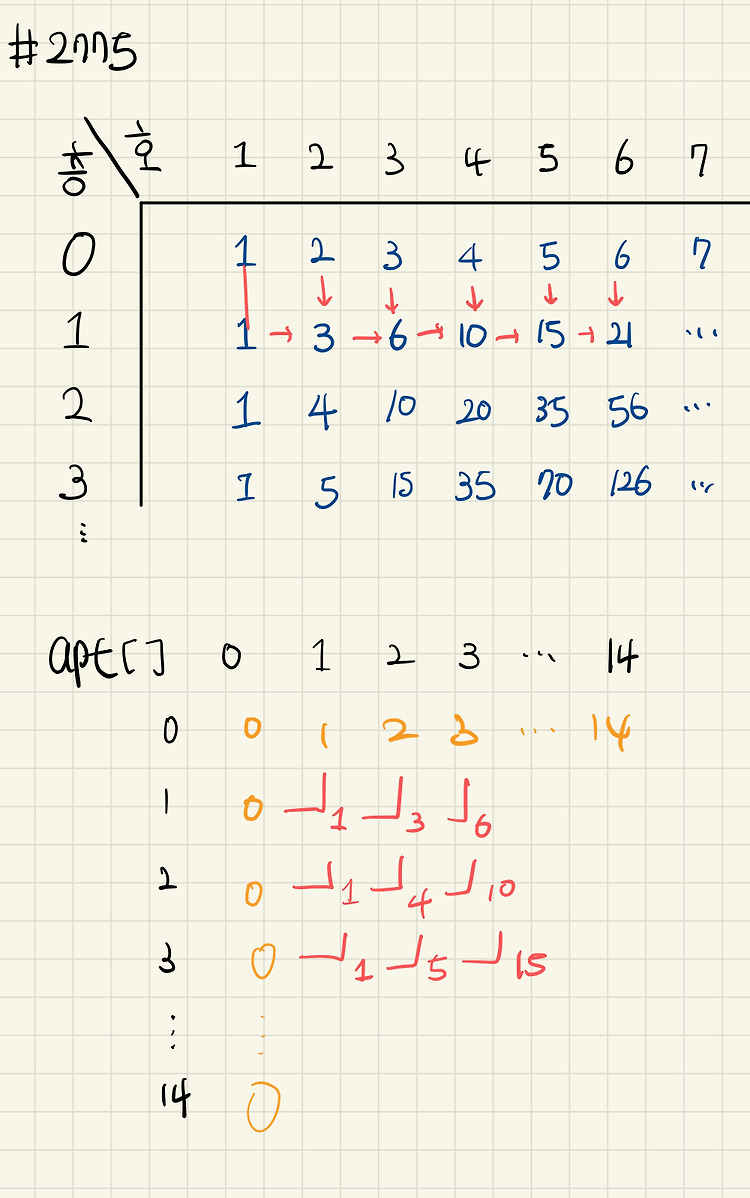 #2775
층 \ 호 1 2 3 4 5 6 7
0 1 2 3 4 5 6 7
↓ ↓ ↓ ↓ ↓
1 1 → 3 → 6 → 10 → 15 → 21 ...
2 1 4 10 20 35 56 ...
3 1 5 15 35 70 126 ...
⋮
apt[] 0 1 2 3 ... 14
0 0 1 2 3 ... 14
1 0 1 3 6
2 0 1 4 10
3 0 1 5 15
⋮ ⋮
14 0